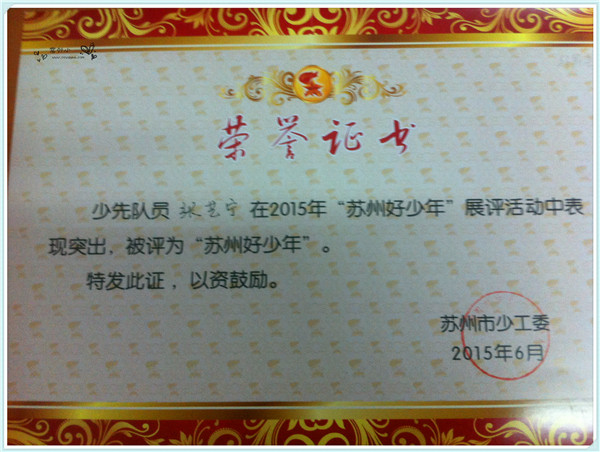 荣誉证书
少先队员 张艺宁 在2015年“苏州好少年”展评活动中表
现突出，被评为“苏州好少年”。
特发此证，以资鼓励。
苏州市少工委
2015年6月